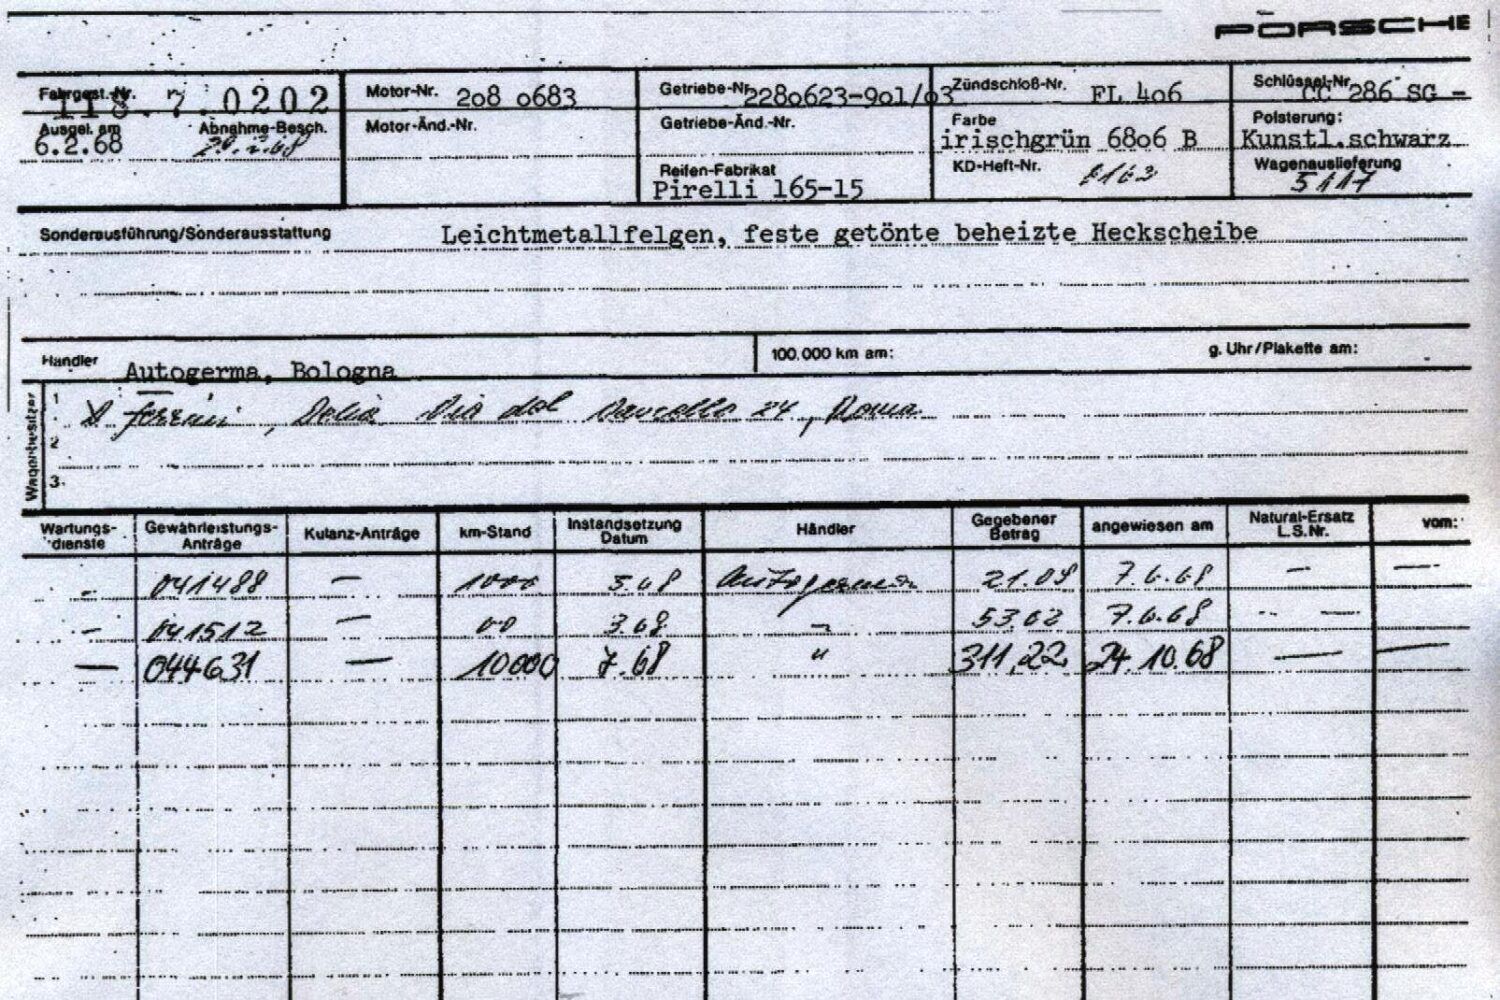 PORSCHE
Fahrgest.-Nr. 118.7.0202 Motor-Nr. 208 0683 Getriebe-Nr. 2280623-901/03 Zündschloß-Nr. FL 406 Schlüssel-Nr. CC 286 SG -
Ausgel. am 6.2.68 Abnahme-Besch. Motor-Änd.-Nr. Getriebe-Änd.-Nr. Farbe irischgrün 6806 B Polsterung: Kunstl.schwarz
Reifen-Fabrikat Pirelli 165-15 KD-Heft-Nr. Wagenauslieferung 5117
Sonderausführung/Sonderausstattung Leichtmetallfelgen, feste getönte beheizte Heckscheibe
Händler Autogerma, Bologna 100.000 km am: g. Uhr/Plakette am:
Wagenbesitzer
1 24, Roma
2
3.
Wartungs-dienste Gewährleistungs-Anträge Kulanz-Anträge km-Stand Instandsetzung Datum Händler Gegebener Betrag angewiesen am Natural-Ersatz L.S.Nr. vom:
- 041488 — 1000 5.68 Autogerma 21.09 7.6.68 — —
- 041512 — 3.68 53.62 7.6.68 - —
— 044631 — 10000 7.68 " 311,22 24.10.68 — —